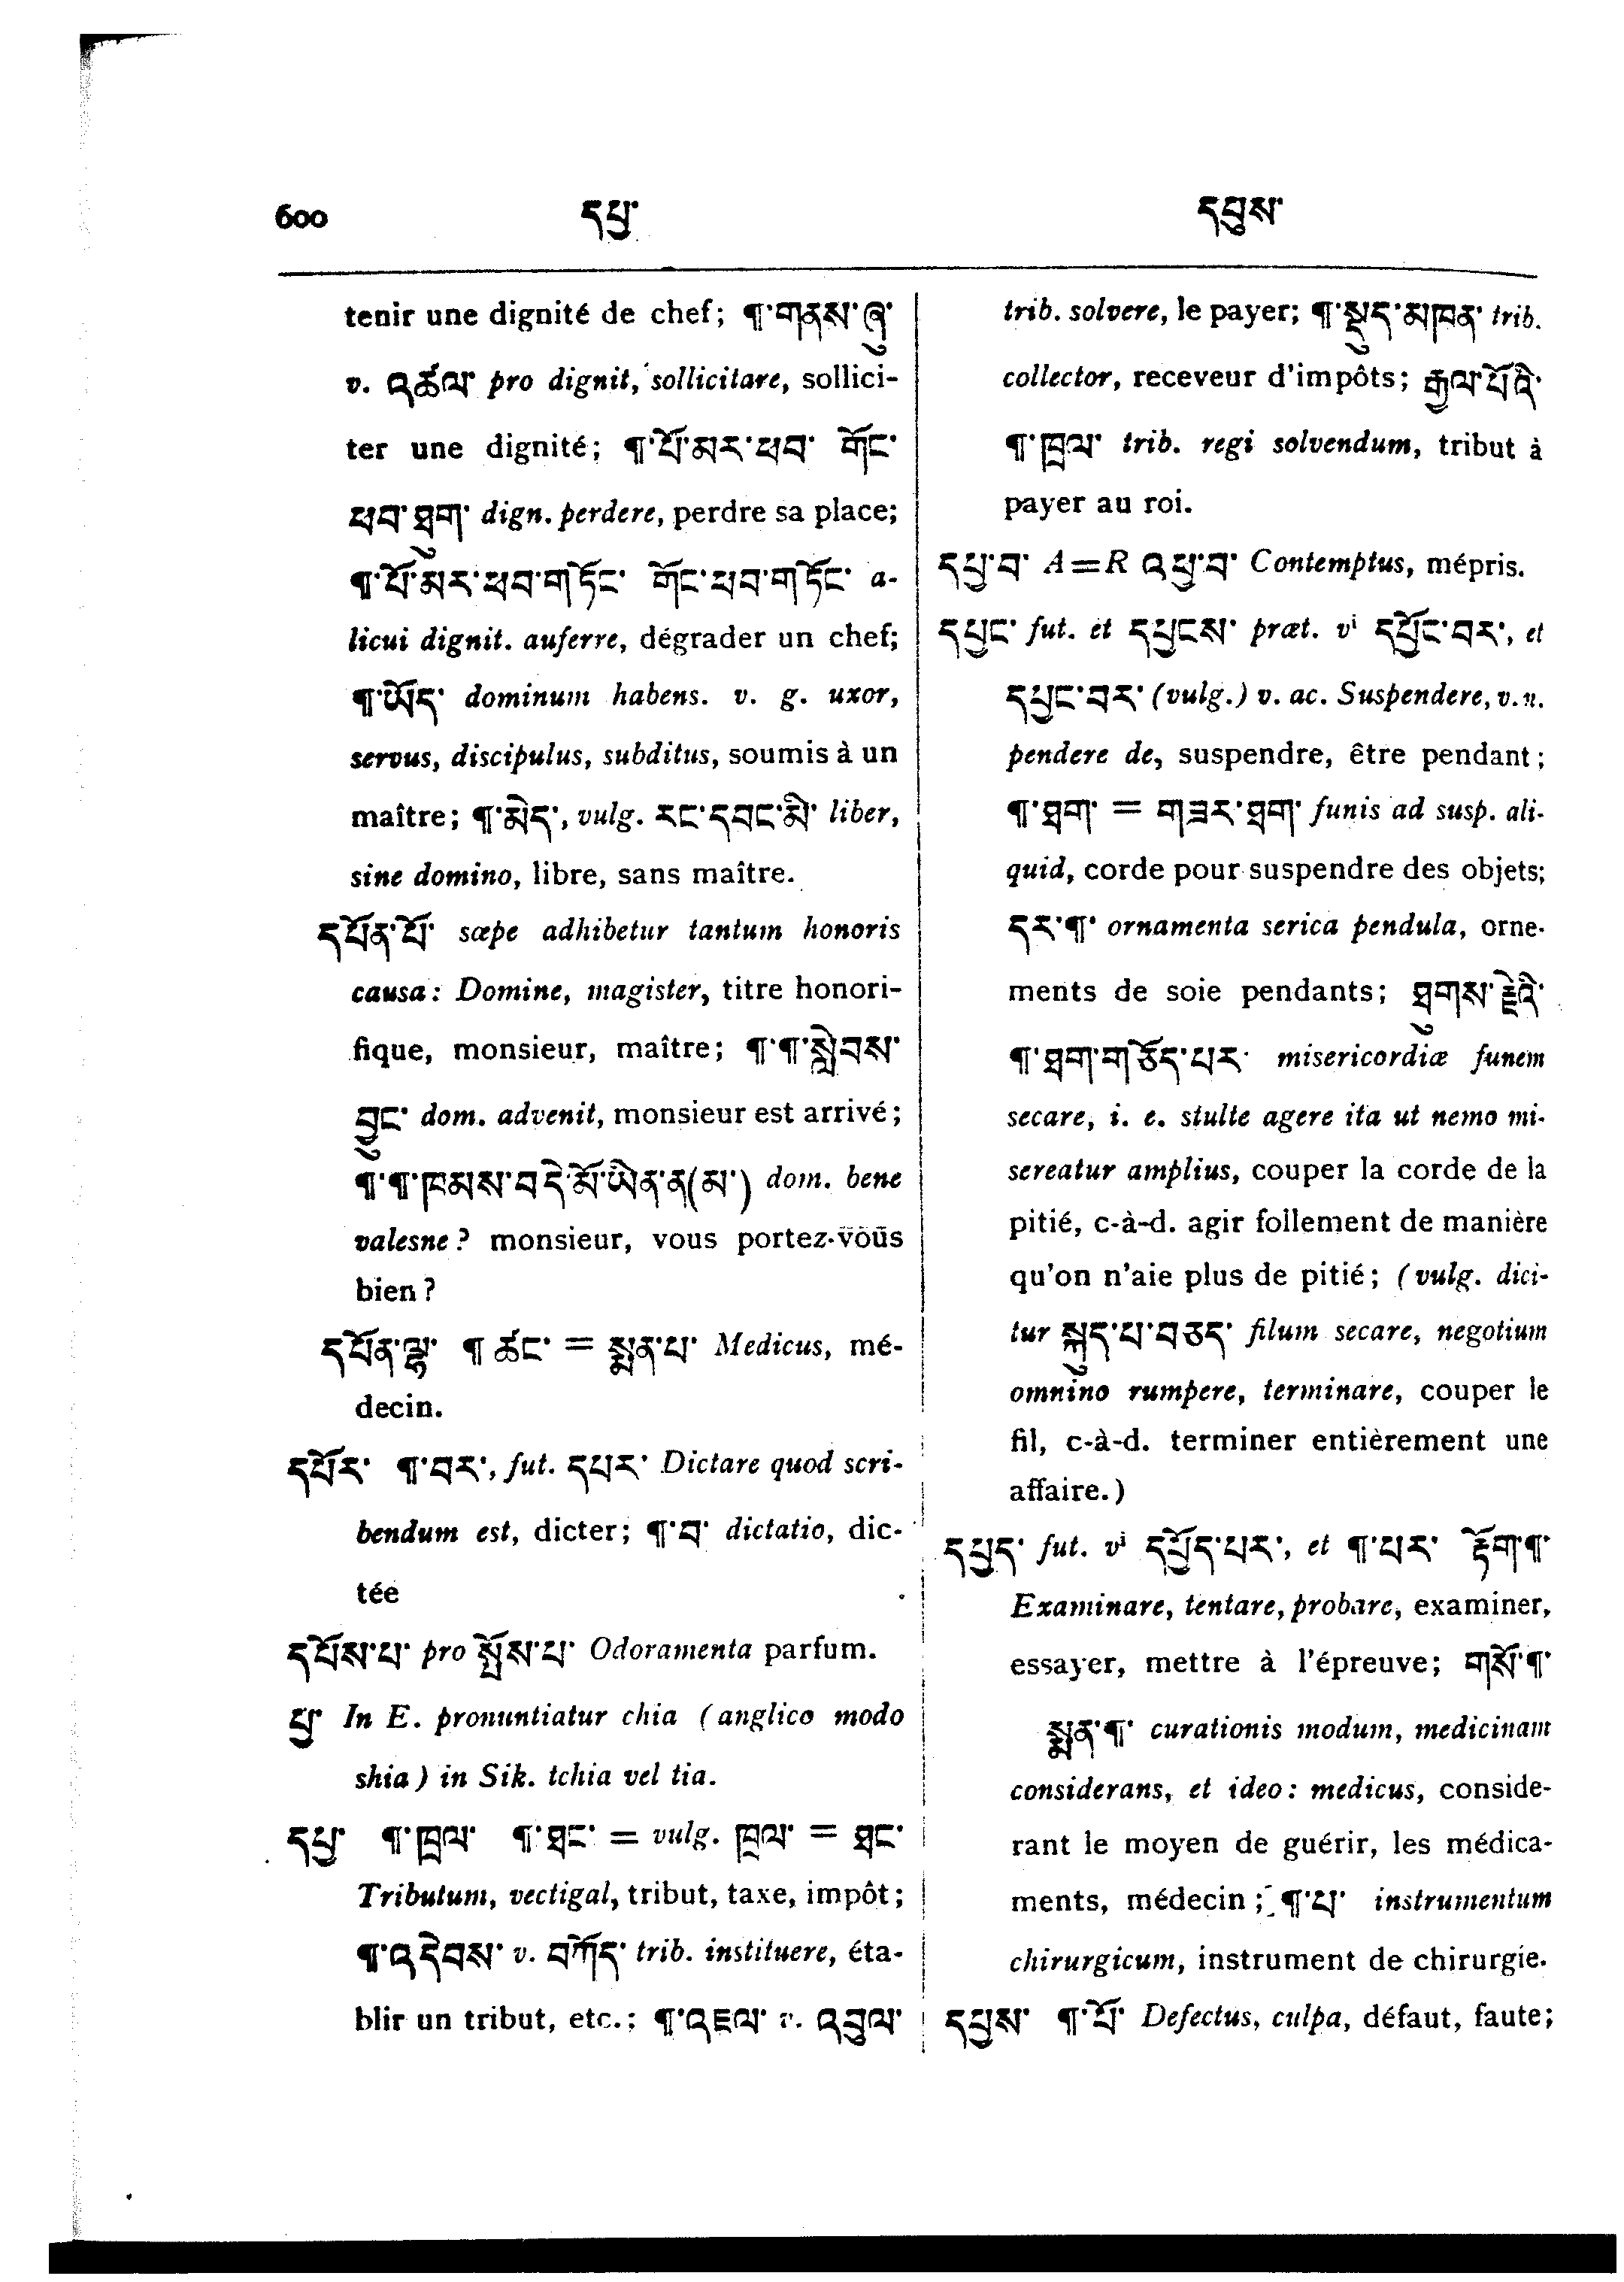 600 དཔྱ་ དཔྱས་
tenir une dignité de chef; ¶་གནས་ཞུ་
v. འཚལ་ pro dignit, sollicitare, sollici-
ter une dignité; ¶་པོ་མར་ཕབ་ གོང་
ཕབ་ཐུག་ dign. perdere, perdre sa place;
¶་པོ་མར་ཕབ་གཏོང་ གོང་ཕབ་གཏོང་ a-
licui dignit. auferre, dégrader un chef;
¶་ཡོད་ dominum habens. v. g. uxor,
servus, discipulus, subditus, soumis à un
maître; ¶་མེད་, vulg. རང་དབང་མི་ liber,
sine domino, libre, sans maître.
དཔོན་པོ་ sæpe adhibetur tantum honoris
causa: Domine, magister, titre honori-
fique, monsieur, maître; ¶་¶་སླེབས་
བྱུང་ dom. advenit, monsieur est arrivé;
¶་¶་ཁམས་བདེ་མོ་ཡིན་ན(མ་) dom. bene
valesne? monsieur, vous portez-vous
bien?
དཔོན་ལྷ་ ¶ ཚང་ = སྨན་པ་ Medicus, mé-
decin.
དཔོར་ ¶་བར་, fut. དཔར་ Dictare quod scri-
bendum est, dicter; ¶་བ་ dictatio, dic-
tée
དཔོས་པ་ pro སྤོས་པ་ Odoramenta parfum.
པྱ་ In E. pronuntiatur chia (anglico modo
shia) in Sik. tchia vel tia.
དཔྱ་ ¶་ཁྲལ་ ¶་ཐང་ = vulg. ཁྲལ་ = ཐང་
Tributum, vectigal, tribut, taxe, impôt;
¶་འདེབས་ v. བཀོད་ trib. instituere, éta-
blir un tribut, etc.; ¶་འཇལ་ v. འབུལ་
trib. solvere, le payer; ¶་སྡུད་མཁན་ trib.
collector, receveur d'impôts; རྒྱལ་པོའི་
¶་ཁྲལ་ trib. regi solvendum, tribut à
payer au roi.
དཔྱ་བ་ A = R འཕྱ་བ་ Contemptus, mépris.
དཔྱང་ fut. et དཔྱངས་ præt. vⁱ དཔྱོང་བར་, et
དཔྱང་བར་ (vulg.) v. ac. Suspendere, v. n.
pendere de, suspendre, être pendant;
¶་ཐག་ = གཟར་ཐག་ funis ad susp. ali-
quid, corde pour suspendre des objets;
དར་¶་ ornamenta serica pendula, orne-
ments de soie pendants; ཐུགས་རྗེའི་
¶་ཐག་གཅོད་པར་ misericordiæ funem
secare, i. e. stulte agere ita ut nemo mi-
sereatur amplius, couper la corde de la
pitié, c-à-d. agir follement de manière
qu'on n'aie plus de pitié; (vulg. dici-
tur སྐུད་པ་བཅད་ filum secare, negotium
omnino rumpere, terminare, couper le
fil, c-à-d. terminer entièrement une
affaire.)
དཔྱད་ fut. vⁱ དཔྱོད་པར་, et ¶་པར་ རྟོག་¶་
Examinare, tentare, probare, examiner,
essayer, mettre à l'épreuve; གསོ་¶་
སྨན་¶་ curationis modum, medicinam
considerans, et ideo: medicus, conside-
rant le moyen de guérir, les médica-
ments, médecin; ¶་པ་ instrumentum
chirurgicum, instrument de chirurgie.
དཔྱས་ ¶་པོ་ Defectus, culpa, défaut, faute;